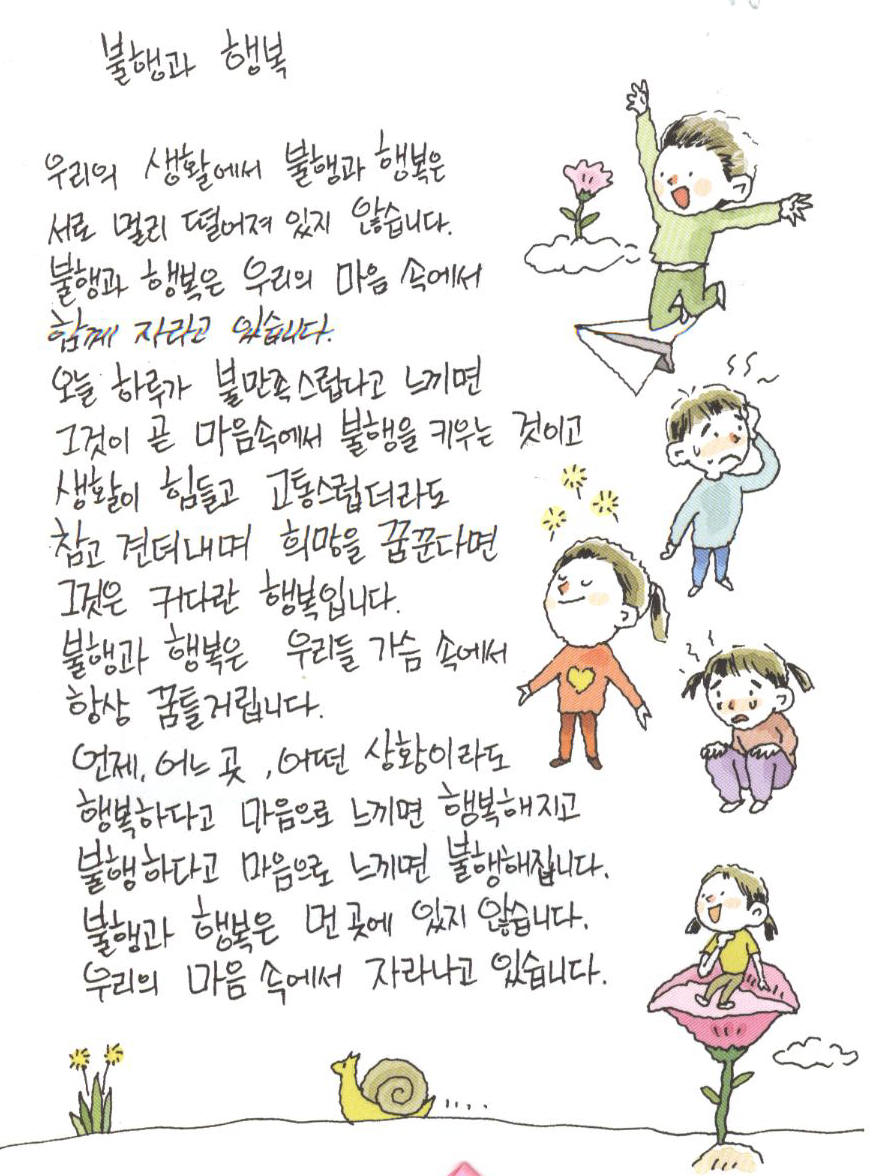 불행과 행복
우리의 생활에서 불행과 행복은
서로 멀리 떨어져 있지 않습니다.
불행과 행복은 우리의 마음 속에서
함께 자라고 있습니다.
오늘 하루가 불만족스럽다고 느끼면
그것이 곧 마음속에서 불행을 키우는 것이고
생활이 힘들고 고통스럽더라도
참고 견뎌내며 희망을 꿈꾼다면
그것은 커다란 행복입니다.
불행과 행복은 우리들 가슴 속에서
항상 꿈틀거립니다.
언제, 어느 곳, 어떤 상황이라도
행복하다고 마음으로 느끼면 행복해지고
불행하다고 마음으로 느끼면 불행해집니다.
불행과 행복은 먼 곳에 있지 않습니다.
우리의 마음 속에서 자라나고 있습니다.